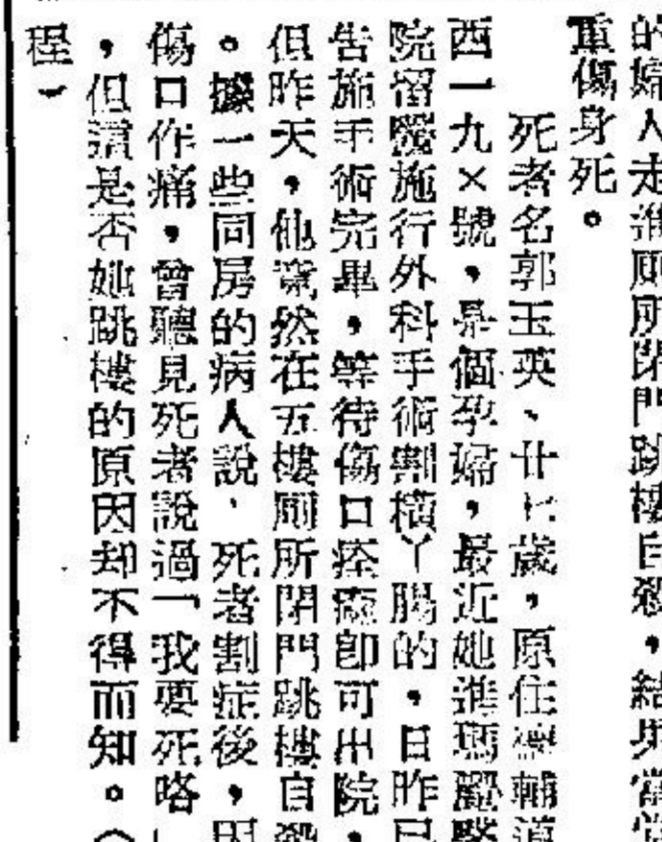 的婦人走進厠所閉門跳樓自殺，結果當堂
重傷身死。
死者名郭玉英、廿七歲，原住德輔道
西一九×號，是個孕婦，最近她進瑪麗醫
院留醫施行外科手術割橫丫腸的，日昨已
告施手術完畢，等待傷口痊癒卽可出院，
但昨天，他竟然在五樓厠所閉門跳樓自殺
。據一些同房的病人說、死者割症後，因
傷口作痛，曾聽見死者說過「我要死咯」
，但這是否她跳樓的原因却不得而知。（
程）